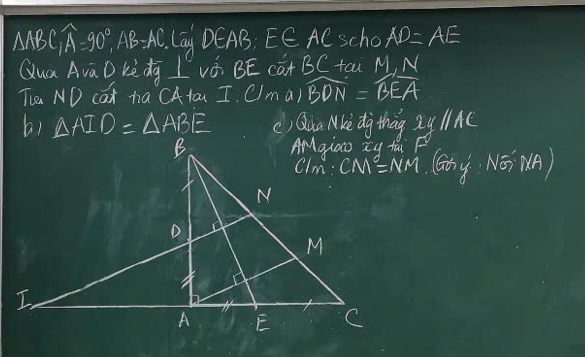 ΔABC, Â=90°, AB=AC. Lấy D∈AB; E∈ AC scho AD=AE
Qua A và D kẻ đg ⊥ với BE cắt BC tại M, N
Tia ND cắt tia CA tại I. C/m a) BDN = BEA
b) ΔAID = ΔABE
c) Qua N kẻ đg thẳng xy // AC
AM giao xy tại F
C/m: CM = NM. (Gợi ý: Nối NA)
B
N
D
M
I
A
E
C